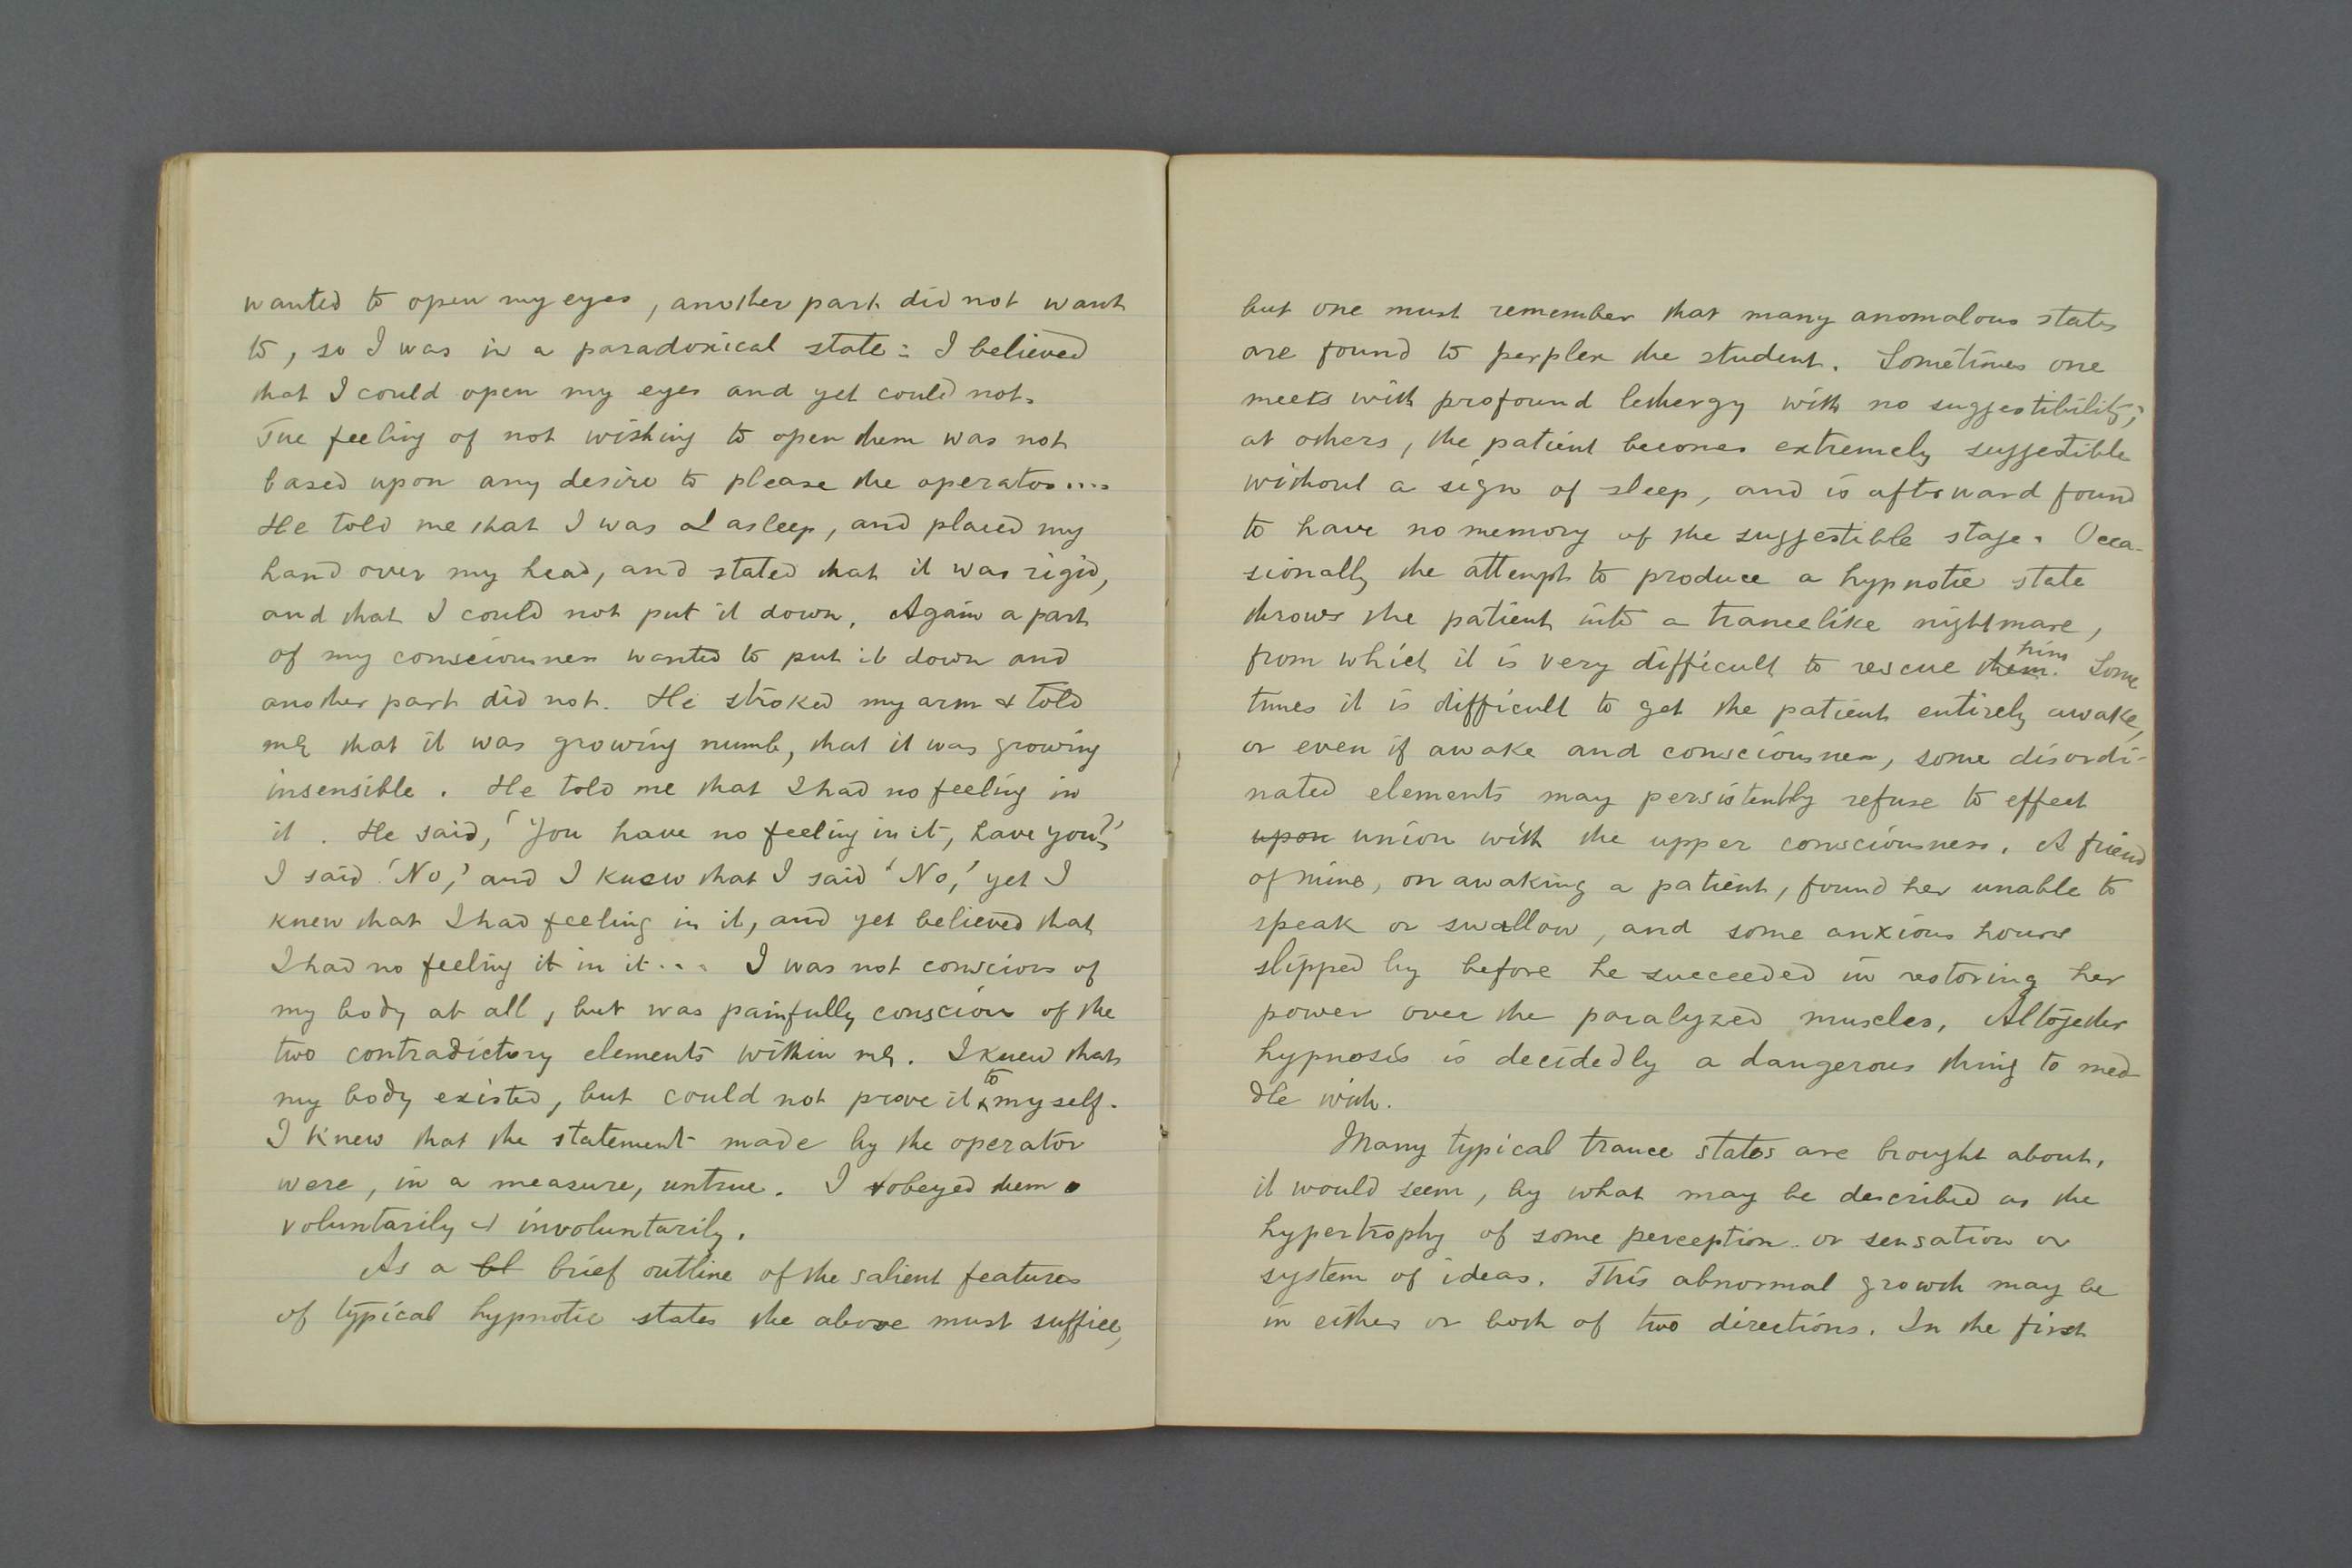 wanted to open my eyes, another part did not want
to, so I was in a paradoxical state: I believed
that I could open my eyes and yet could not.
The feeling of not wishing to open them was not
based upon any desire to please the operator....
He told me that I was asleep, and placed my
hand over my head, and stated that it was rigid,
and that I could not put it down. Again a part
of my consciousness wanted to put it down and
another part did not. He stroked my arm & told
me that it was growing numb, that it was growing
insensible. He told me that I had no feeling in
it. He said, 'You have no feeling in it, have you?'
I said 'No,' and I knew that I said 'No,' yet I
knew that I had feeling in it, and yet believed that
I had no feeling it in it... I was not conscious of
my body at all, but was painfully conscious of the
two contradictory elements within me. I knew that
my body existed, but could not prove it to myself.
I knew that the statement made by the operator
were, in a measure, untrue. I obeyed them
voluntarily & involuntarily.
As a bl brief outline of the salient features
of typical hypnotic states the above must suffice,
but one must remember that many anomalous states
are found to perplex the student. Sometimes one
meets with profound lethergy with no suggestibility;
at others, the patient becomes extremely suggestible
without a sign of sleep, and is afterward found
to have no memory of the suggestible stage. Occa-
sionally the attempt to produce a hypnotic state
throws the patient into a trancelike nightmare,
from which it is very difficult to rescue them him. Some
times it is difficult to get the patient entirely awake,
or even if awake and consciousness, some disordi-
nated elements may persistently refuse to effect
upon union with the upper consciousness. A friend
of mine, on awaking a patient, found her unable to
speak or swallow, and some anxious hours
slipped by before he succeeded in restoring her
power over the paralyzed muscles. Altogether
hypnosis is decidedly a dangerous thing to med-
dle with.
Many typical trance states are brought about,
it would seem, by what may be described as the
hypertrophy of some perception or sensation or
system of ideas. This abnormal growth may be
in either or both of two directions. In the first